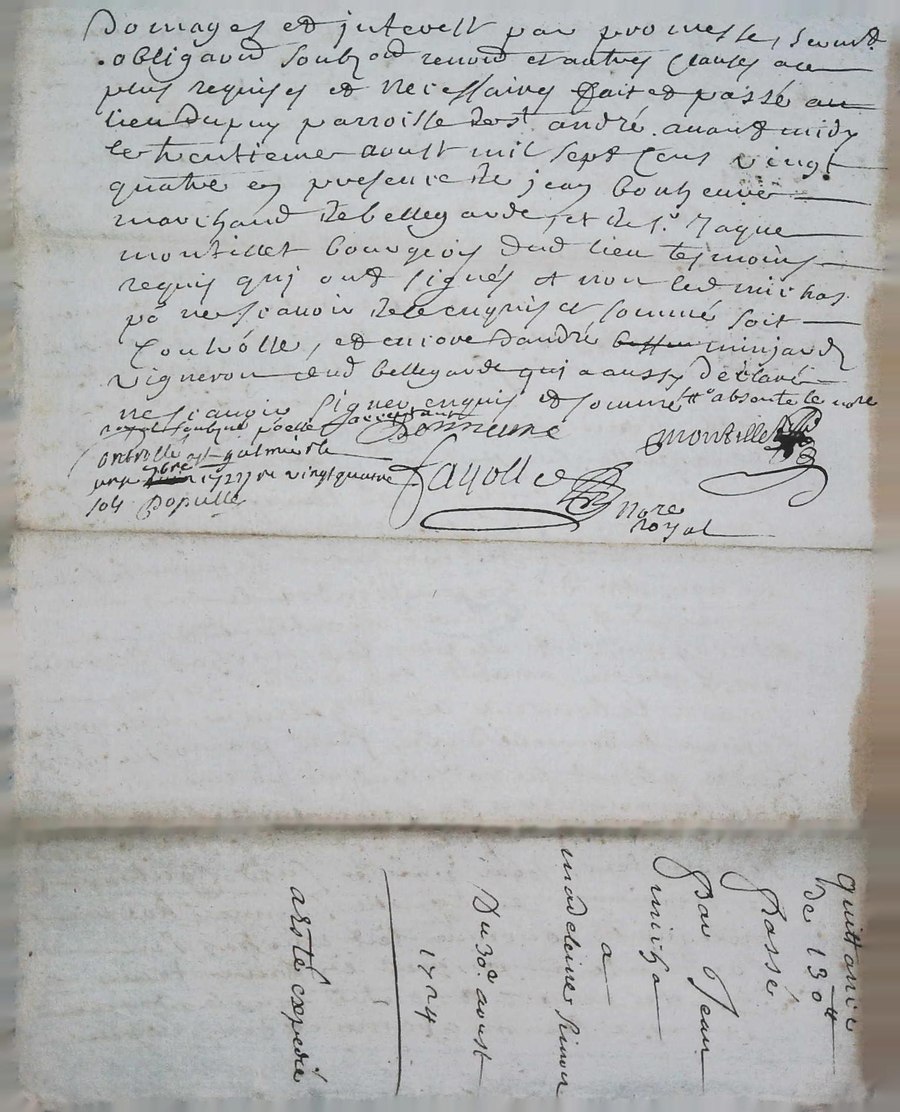 Domages et jnterest par promesse, serment
obligaond soubzon renond et autres clauses au
plus requises et necessaires fait et passé au
lieu Dupuy parroisse de st andré avant midy
le trentieme aoust mil sept cens vingt
quatre en presence de jean bonheure
marchand de bellegarde, et de sr. Jaque
montillet bourgeois dud lieu tesmoins
requis qui ont signés et non led michas
po ne scavoir de ce enquis et sommé soit
Controlle, et encore dandré minjard
vigneron dud bellegarde qui a aussy déclaré
ne scavoir signer enquis et sommé absente le nore
royal soubzne
Bonneure
Montillet
Controlle a st galmier le
7bre 1724 vingt quatre
Fayolle
nore
royal
quittance
de 130
Passé
Par Jean
micha
a
madeleine
Du 30e aoust
1724
a este expedié